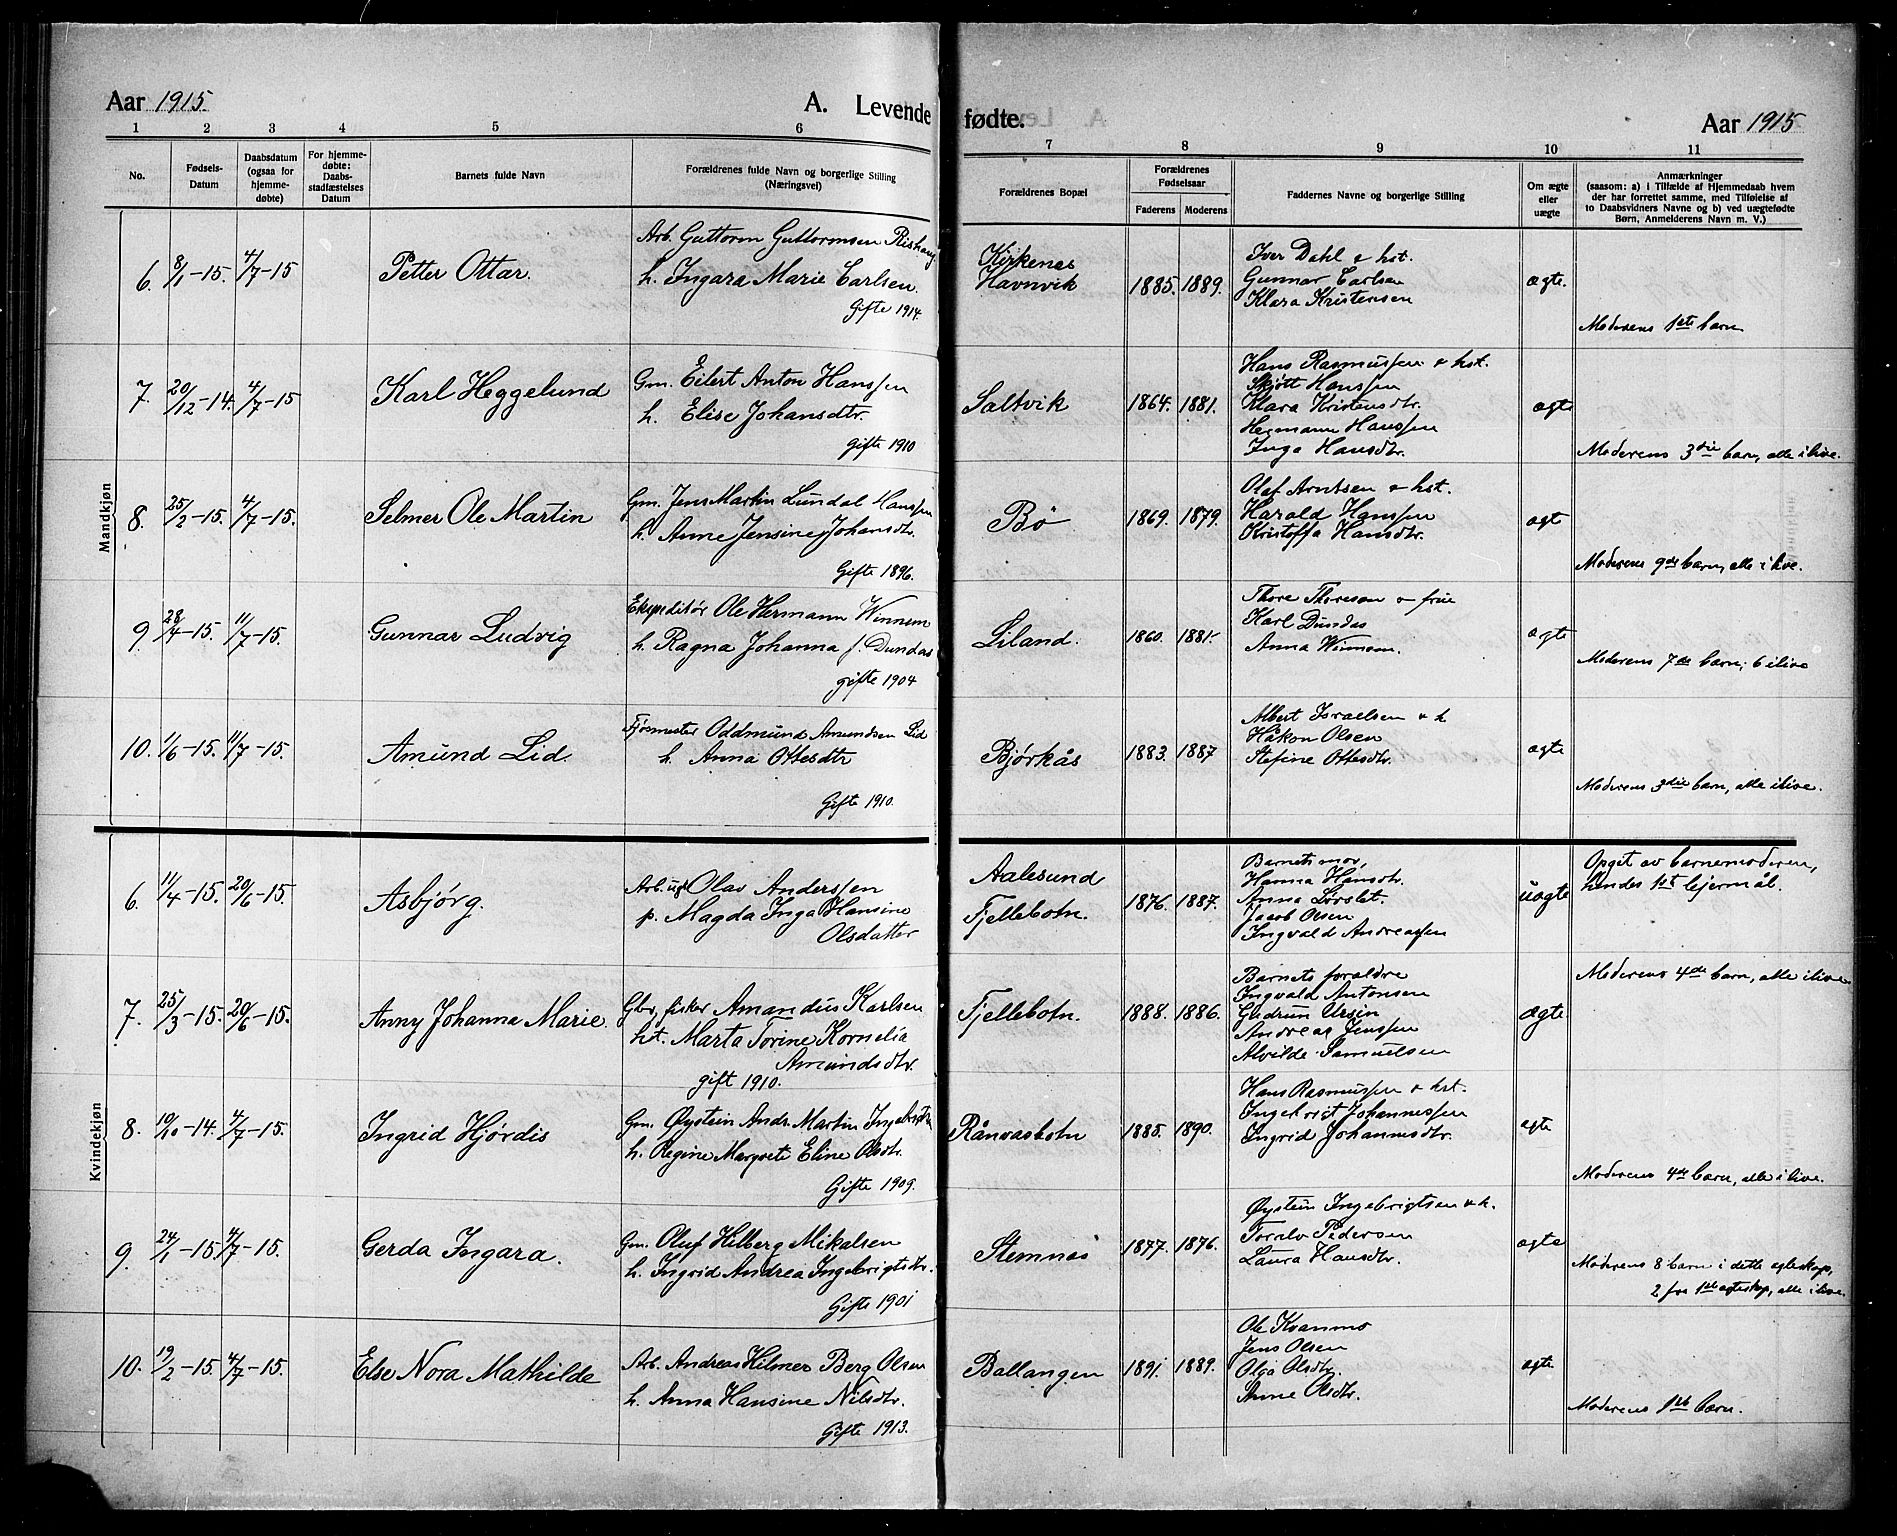 Aar 1915. A. Levende fødte. Aar 1915
1 2 3 4 5 6 7 8 9 10 11
No.
Fødsels-Datum
Daabsdatum (ogsaa for hjemmedøbte)
For hjemmedøbte: Daabsstadfæstelses Datum
Barnets fulde Navn
Forældrenes fulde Navn og borgerlige Stilling (Næringsvei)
Forældrenes Bopæl
Forældrenes Fødselsaar
Faderens Moderens
Faddernes Navne og borgerlige Stilling
Om ægte eller uægte
Anmærkninger
(saasom: a) i Tilfælde af Hjemmedaab hvem
der har forrettet samme, med Tilføielse af
to Daabsvidners Navne og b) ved uægtefødte
Børn, Anmelderens Navn m. V.)
Mandkjøn
6. 8/1-15. 4/7-15 Petter Ottar.
Arb. Guttorm Guttormsen Rishaug
h. Ingara Marie Carlsen.
Gifte 1914.
Kirkenes
Havnvik
1885. 1889.
Iver Dahl & hst.
Gunnar Carlsen
Klara Kristensen
ægte.
Moderens 1ste barn
7. 20/12-14. 4/7-15 Karl Heggelund
Gm. Eilert Anton Hanssen
h. Elise Johansdtr.
Gifte 1910
Saltvik
1864. 1881.
Hans Rasmussen & hst.
Skjött Hanssen
Klara Kristensdtr.
Hermann Hanssen
Inga Hansdtr.
ægte
Moderens 3die barn, alle ilive.
8. 25/2-15. 4/7-15. Selmer Ole Martin
Gm. Jens Martin Lundal Hanssen
h. Anne Jensine Johansdtr.
Gifte 1896.
Bø
1869. 1879.
Olaf Arntsen & hst.
Harald Hanssen
Kristoffa Hansdtr.
ægt
Moderens 9de barn, alle ilive.
9. 28/4-15. 11/7-15. Gunnar Ludvig
Ekspeditör Ole Hermann Winnem
h. Ragna Johanna f. Dundas
gifte 1904
Liland.
1860. 1881.
Thore Thoresen & frue
Karl Dundas
Anna Winnem.
ægte
Moderens 7de barn; 6 ilive
10. 1/6-15. 11/7-15. Amund Lid.
Fjøsmester Oddmund Amundsen Lid
h. Anna Ottesdtr
Gifte 1910.
Bjørkås
1883. 1887
Albert Israelsen & h
Håkon Olsen
Stefine Ottesdtr.
ægte
Moderens 3die barn, alle ilive.
Kvindekjøn
6. 11/4-15. 20/6-15. Asbjørg.
Arb. ugt Olav Anderssen
p. Magda Inga Hansine
Olsdatter
Aalesund
Fjellebotn.
1876. 1887.
Barnets mor,
Hanna Hansdtr.
Anna Lörslet.
Jacob Olsen
Ingvald Andreassen
uægte
Opget av barnemoderen,
hendes 1st lejermål.
7. 25/3-15. 20/6-15. Anny Johanna Marie.
Gbr, fisker Amandus Karlsen
hst. Marta Torine Kornelia
Amundsdtr.
gift 1910.
Fjellebotn.
1888. 1886.
Barnets forældre
Ingvald Antonsen
Gudrun Ursin
Andreas Jenssen
Alvilde Samuelsen
ægte
Moderens 4de barn, alle ilive
8. 19/10-14. 4/7-15. Ingrid Hjördis
Gm. Øystein Andr. Martin Ingebrigtsen
h. Regine Margrete Eline Olsdtr.
Gifte 1909.
Rånvasbotn
1885. 1890.
Hans Rasmussen & hst.
Ingebrigt Johannessen
Ingrid Johannesdtr.
ægte
Moderens 4de barn, alle ilive.
9. 24/1-15. 4/7-15. Gerda Ingara.
Gm. Oluf Hilberg Mikalsen
h. Ingrid Andrea Ingebrigtsdtr.
Gifte 1901
Stemnes
1877. 1876.
Øystein Ingebrigtsen & h.
Toralv Pedersen
Laura Hansdtr.
ægte
Moderens 8 barn i dette ægteskap,
2 fra 1ste ægteskap, alle ilive.
10. 19/2-15. 4/7-15. Else Nora Mathilde
Arb. Andreas Hilmer Berg Olsen
h. Anna Hansine Nilsdtr.
Gifte 1913.
Ballangen
1891. 1889.
Ole Kvanmo
Jens Olsen
Olga Olsdtr.
Anne Olsdtr.
ægte
Moderens 1ste barn.